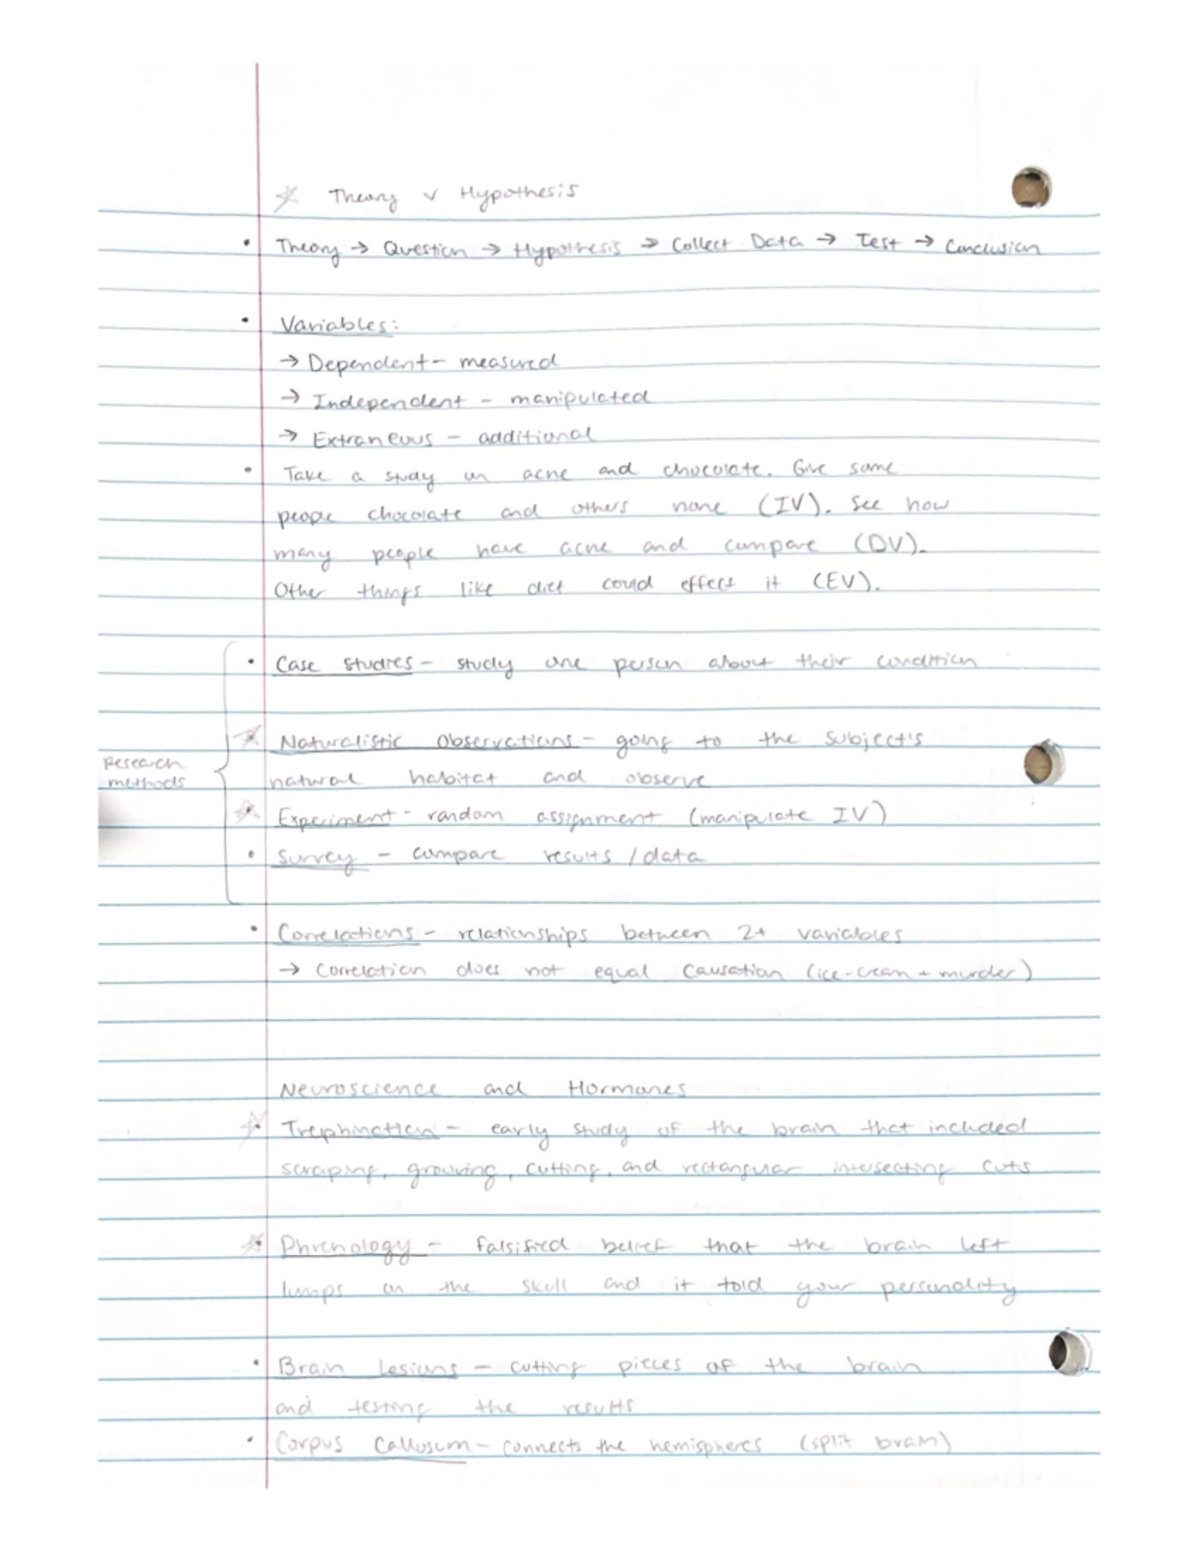 ☆ Theory v Hypothesis
• Theory → Question → Hypothesis → Collect Data → Test → Conclusion
• Variables:
→ Dependent - measured
→ Independent - manipulated
→ Extraneous - additional
• Take a study on acne and chocolate. Give some
people chocolate and others none (IV). See how
many people have acne and compare (DV).
Other things like diet could effect it (EV).
• Case studies - study one person about their condition
☆ Naturalistic Observations - going to the subject's
natural habitat and observe
Research
methods
☆ Experiment - random assignment (manipulate IV)
• Survey - compare results / data
• Correlations - relationships between 2+ variables
→ Correlation does not equal Causation (ice-cream + murder)
Neuroscience and Hormones
☆ Trephination - early study of the brain that included
scraping, grooving, cutting, and rectangular intersecting cuts
☆ Phrenology - falsified belief that the brain left
lumps on the skull and it told your personality
• Brain Lesions - cutting pieces of the brain
and testing the results
• Corpus Callosum - connects the hemispheres (split brain)